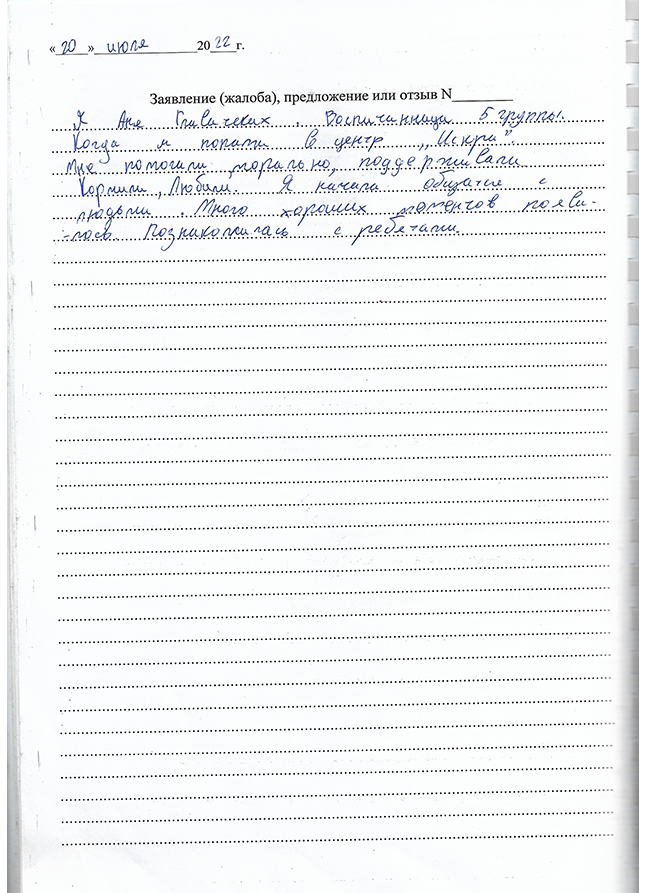 «20» июля 2022 г.
Заявление (жалоба), предложение или отзыв N________
Я Аня . Воспитанница 5 группы.
Когда я попала в центр „Искра".
Мне помогали морально, поддерживали
Кормили, Любили. Я начала общатся с
людьми. Много хороших моментов появи-
-лось. Познакомилась с ребятами.